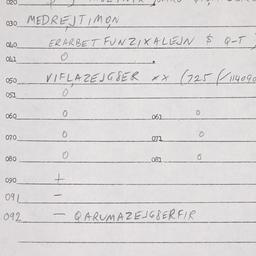 020
030 MEDREJTIMON
040 ERARBET FUNZIXALEJN $ Q-T )
041 0
050 VIFLAZEJGSER xx (725
051 0
060 0 061 0
070 0 071 0
080 0 081 0
090 +
091 -
092 - QARUMAZEJGSERFIR